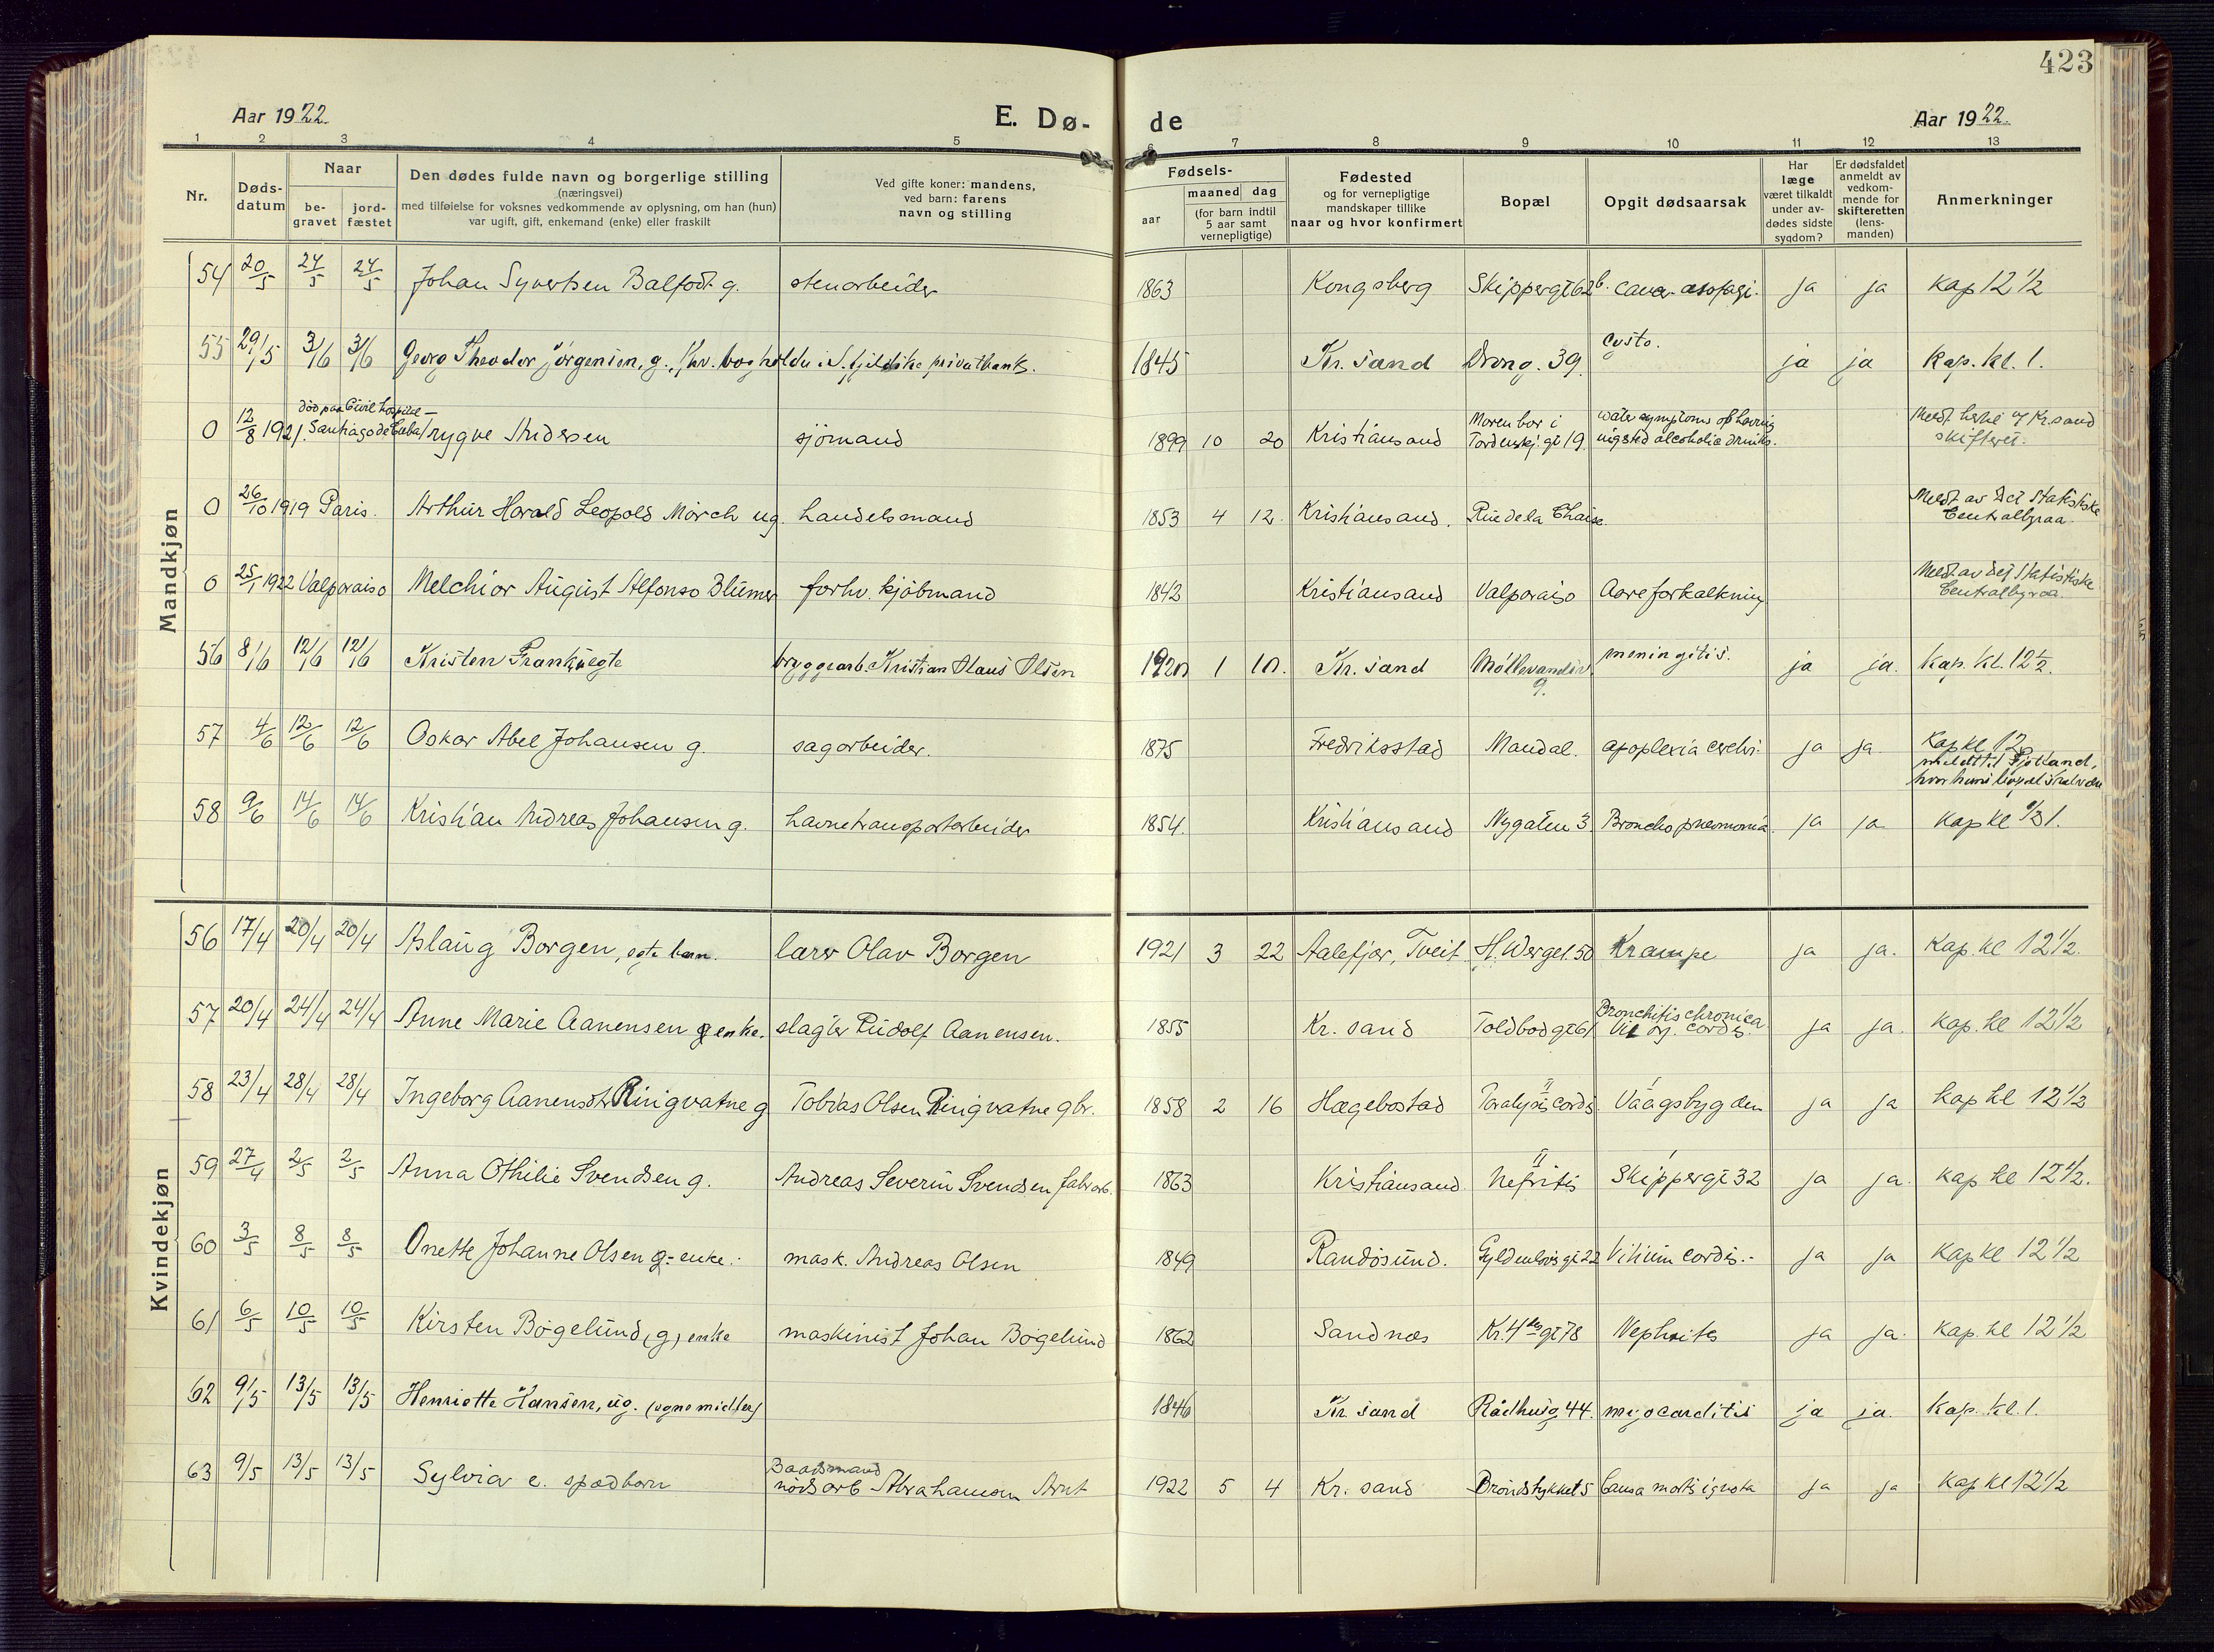 423
Aar 1922.
E. Dø- de
Aar 1922.
1 2 3 4 5 6 7 8 9 10 11 12 13
Nr.
Døds-
datum
Naar
be-
gravet
jord-
fæstet
Den dødes fulde navn og borgerlige stilling
(næringsvei)
med tilføielse for voksnes vedkommende av oplysning, om han (hun)
var ugift, gift, enkemand (enke) eller fraskilt
Ved gifte koner: mandens,
ved barn: farens
navn og stilling
Fødsels-
aar
maaned dag
(for barn indtil
5 aar samt
vernepligtige)
Fødested
og for vernepligtige
mandskaper tillike
naar og hvor konfirmert
Bopæl
Opgit dødsaarsak
Har
læge
været tilkaldt
under av-
dødes sidste
sygdom?
Er dødsfaldet
anmeldt av
vedkom-
mende for
skifteretten
(lens-
manden)
Anmerkninger
Mandkjøn
54 20/5 24/5 24/5 Johan Syvertsen Balfodt g. stenarbeider 1863 Kongsberg Skippergt 62 b. ja ja Kap 12 1/2
55 29/5 3/6 3/6 Georg Theodor Jörgensen, g., fhv. bogholder i privatbank. 1845 Kr. sand Drong. 39 cysto. ja ja Kap. kl. 1.
0 12/8 1921. död paa Civil hospital – Santiago de Cuba Trygve Andersen sjömand 1899 10 20 Kristiansand Moren bor i Tordenskj. gt 19. symptoms of having alcoholic drinks. Meldt Kr. sand skifteret.
0 26/10 1919 Paris. Arthur Harald Leopold Mörch ug. handelsmand 1853 4 12. Kristiansand. Rue de la Chaise. Meldt av Det Statistiske Centralbyraa
0 25/1 1922 Valparaiso Melchior August Alfonso Blumer forhv. kjöbmand 1842 Kristiansand Valparaiso Aareforkalkning Meldt av det Statistiske Centralbyraa
56 8/6 12/6 12/6 Kristen Frank, ægte bryggearb. Kristian Olaus Olsen 1920 1 10. Kr. sand Möllevandsv. 9. meningitis. ja ja. Kap. kl. 12 1/2.
57 4/6 12/6 12/6 Oskar Abel Johansen g. sagarbeider. 1875 Fredriksstad Mandal. apoplexia cerebri. ja ja. Kap kl 12
58 9/6 14/6 14/6 Kristian Andreas Johansen g. havnetransportarbeider 1854. Kristiansand Nygaten 3 Bronchopneumonia. ja ja. Kap kl 1/2 1.
Kvindekjøn
56 17/4 20/4 20/4 Aslaug Borgen, egte barn. lærer Olav Borgen 1921 3 22 Aalefjær, Tveit H. Wergel. 50 Krampe ja ja. Kap. kl 12 1/2.
57 20/4 24/4 24/4 Anne Marie Aanensen g enke. slagter Rudolf Aanensen. 1855 Kr. sand Toldbodgt 61 Bronchitis chronica Vit. org. cordis. ja ja. kap. kl 12 1/2
58 23/4 28/4 28/4 Ingeborg Aanensdtr Ringvatne g Tobias Olsen Ringvatne gbr. 1858 2 16 Hægebostad Paralysis cordis Vaagsbygden ja ja kap kl 12 1/2
59 27/4 2/5 2/5 Anna Othilie Svendsen g. Andreas Severin Svendsen fabrarb. 1863 Kristiansand. Nefritis Skippergt 32 ja ja. kap kl 12 1/2.
60 3/5 8/5 8/5 Onette Johanne Olsen g- enke. mask. Andreas Olsen 1849 Randösund. Gyldenlövs gt 22 Vitium cordis. ja ja kap kl 12 1/2
61 6/5 10/5 10/5 Kirsten Bögelund, (g) enke maskinist Johan Bögelund 1862 Sandnæs Kr. 4des gt 78 Nephrites ja ja. kap. kl 12 1/2
62 9/5 13/5 13/5 Henriette Hansen, ug. (egne midler) 1846 Kr sand Rådhusg. 44. myocarditis ja ja. Kap. kl. 1.
63 9/5 13/5 13/5 Sylvia e. spædbarn Baadsmand nödsarb Abrahamsen Arnt 1922 5 4 Kr. sand Bröndstykket 5 Causa mortis ignota ja ja kap kl 12 1/2